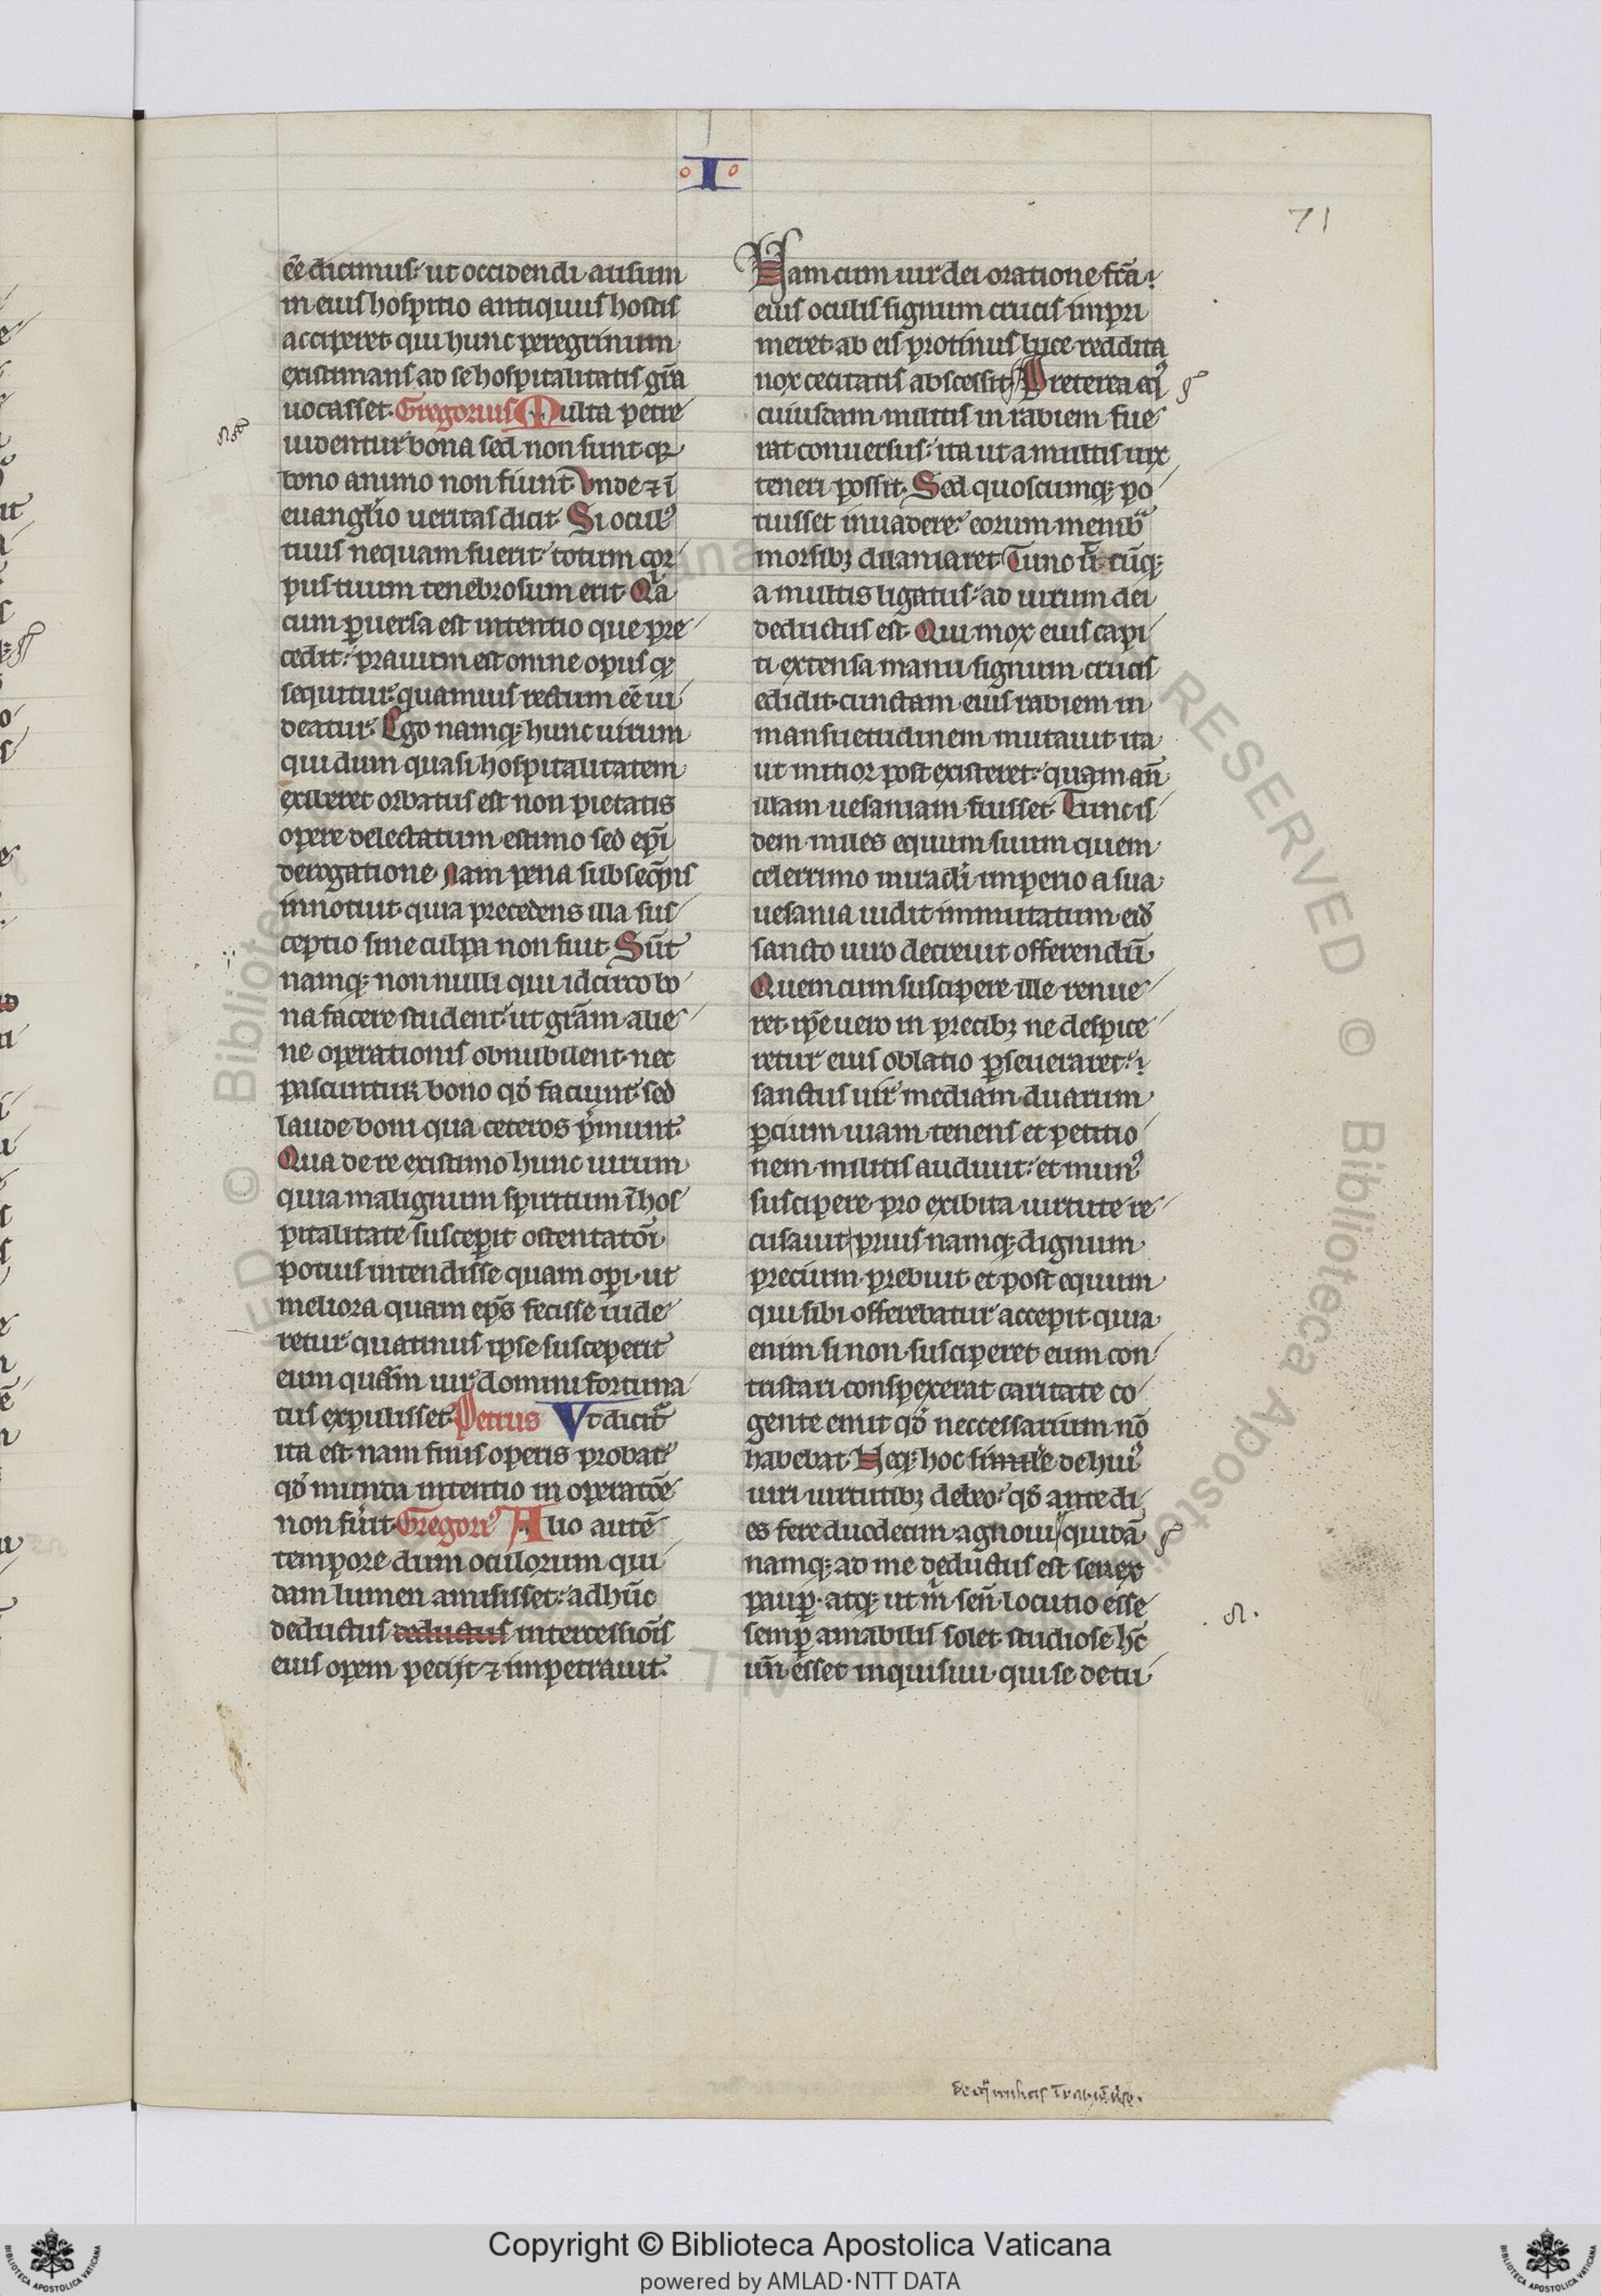 I
71
ēē dicimus ut occidendi ausum
in eius hospitio antiquus hostis
acciperet qui hunc peregrinum
existimans ad se hospitalitatis gr̄a
uocasset. Gregorius Multa petre
uidentur bona sed non sunt qꝛ
bono animo non fiunt Vnde ⁊ ī
euangl̄io ueritas dicit Si ocul᷒
tuus nequam fuerit totum cor
pus tuum tenebrosum erit Qͣa
cum ꝑuersa est intentio que pre
cedit prauum est omne opus qꝫ
sequitur quamuis rectum ēē ui
deatur. Ego namqꝫ hunc uirum
qui dum quasi hospitalitatem
exiberet orbatus est non pietatis
opere delectatum estimo sed ep̄i
derogatione Nam pena subseq̄ns
innotuit quia precedens illa sus
ceptio sine culpa non fuit Sūt
namqꝫ non nulli qui idcirco bo
na facere student ut gr̄am alie
ne operationis obnubilent nec
pascuntur bono qd̓ faciunt sed
laude boni qua ceteros p̓munt
Qua de re existimo hunc uirum
quia malignum spiritum ī hos
pitalitate suscepit ostentatōi
potius intendisse quam oꝑi ut
meliora quam ep̄s fecisse uide
retur quatinus ipse susceperit
eum quem uir domini fortuna
tus expulisset Petrus Vt dicit᷒
ita est nam finis operis probat
qd̓ munda intentio in operatōe
non fuit Gregori᷒ Alio autē
tempore dum oculorum qui
dam lumen amisisset adhūc
deductus deductus intercessiōis
eius opem petijt ⁊ impetrauit
Nam cum uir dei oratione fc̄a
eius oculis signum crucis impri
meret ab eis protinus luce reddita
nox cecitatis abscessit Preterea eq᷒
cuiusdam militis in rabiem fue
rat conuersus ita ut a multis uix
teneri possit Sed quoscumqꝫ po
tuisset inuadere eorum membͣ
morsibꝫ dilaniaret Tunc ū cūqꝫ
a multis ligatus ad uirum dei
deductus est Qui mox eius capi
ti extensa manu signum crucis
edidit cunctam eius rabiem in
mansuetudinem mutauit ita
ut mitior post existeret quam an̄
illam uesaniam fuisset Tunc is
dem miles equum suum quem
celerrimo miraculi imperio a sua
uesania uidit immutatum eid̓
sancto uiro decreuit offerendū
Quem cum suscipere ille renue
ret ip̄e uero in precibꝫ ne despice
retur eius oblatio ꝑseueraret
sanctus uir mediam duarum
ꝑcium uiam tenens et petitio
nem militis audiuit et mun᷒
suscipere pro exibita uirtute re
cusauit prius namqꝫ dignum
precium prebuit et post equum
qui sibi offerebatur accepit quia
enim si non susciperet eum con
tristari conspexerat caritate co
gente emit qd̓ neccessarium nō
habebat Neqꝫ hoc simile de hui᷒
uiri uirtutibꝫ debeo qd̓ ante di
es fere duodecim agnoui quidā
namqꝫ ad me deductus est senex
pauꝑ atqꝫ ut m̓ sen̄ locutio esse
semꝑ amabilis solet studiose hc̄
un̄ esset inquisiui qui se de tu
© Biblioteca Apostolica Vaticana
ALL RIGHTS RESERVED
© Biblioteca Apostolica
Copyright © Biblioteca Apostolica Vaticana
powered by AMLAD·NTT DATA
BIBLIOTECA APOSTOLICA VATICANA
BIBLIOTECA APOSTOLICA VATICANA